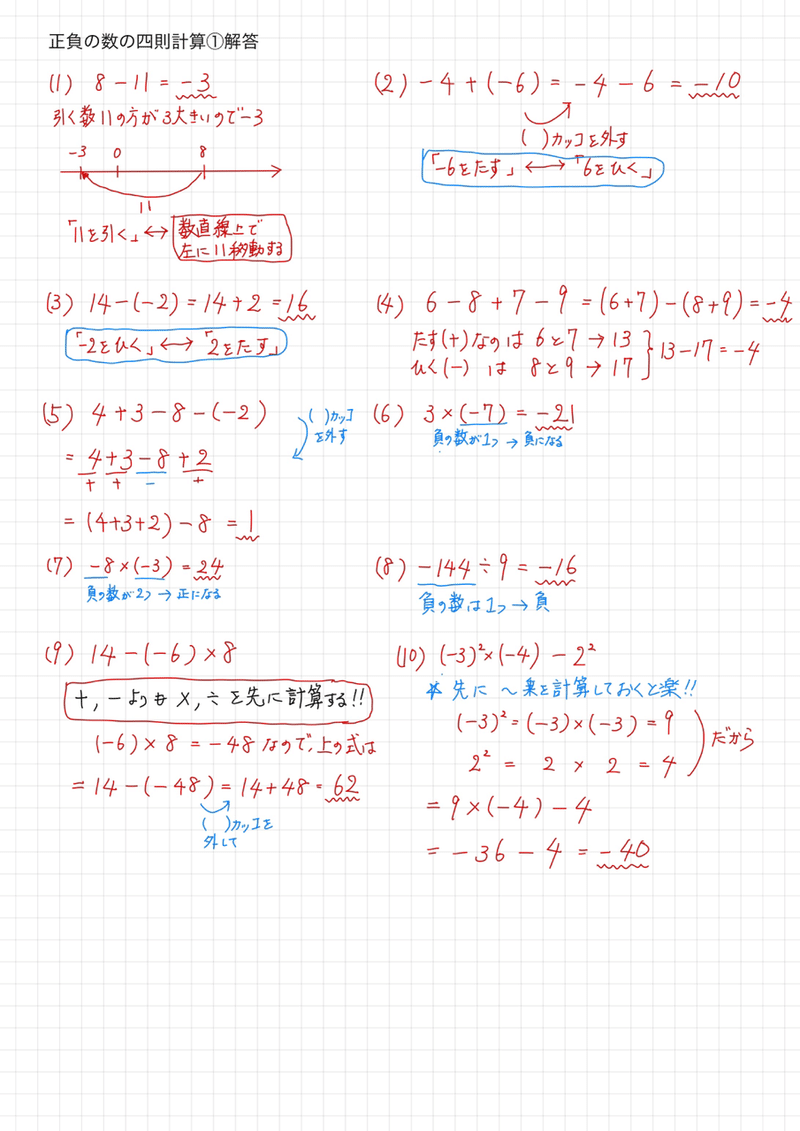 正負の数の四則計算①解答
(1) 8 − 11 = −3
引く数11の方が3大きいので−3
−3 0 8
11
「11を引く」↔ 数直線上で
左に11移動する
(2) −4 + (−6) = −4 − 6 = −10
( )カッコを外す
「−6をたす」↔「6をひく」
(3) 14 − (−2) = 14 + 2 = 16
「−2をひく」↔「2をたす」
(4) 6 − 8 + 7 − 9 = (6+7) − (8+9) = −4
たす(+)なのは 6と7 → 13
ひく(−) は 8と9 → 17
13 − 17 = −4
(5) 4 + 3 − 8 − (−2)
( )カッコ
を外す
= 4 + 3 − 8 + 2
+ + − +
= (4+3+2) − 8 = 1
(6) 3 × (−7) = −21
負の数が1つ → 負になる
(7) −8 × (−3) = 24
負の数が2つ → 正になる
(8) −144 ÷ 9 = −16
負の数は1つ → 負
(9) 14 − (−6) × 8
+, − よりも ×, ÷ を先に計算する!!
(−6) × 8 = −48 なので、上の式は
= 14 − (−48) = 14 + 48 = 62
( )カッコを
外して
(10) (−3)² × (−4) − 2²
* 先に 〜乗を計算しておくと楽!!
(−3)² = (−3) × (−3) = 9
2² = 2 × 2 = 4
だから
= 9 × (−4) − 4
= −36 − 4 = −40